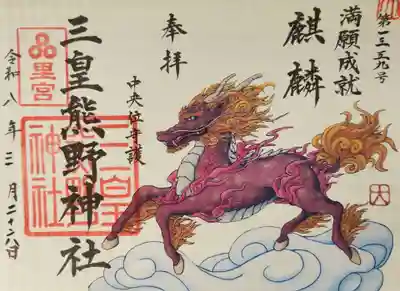 第一三五九号
満願成就
麒麟
奉拝
中央位守護
三皇熊野神社
里宮
三皇熊野神社
令和八年三月二十六日